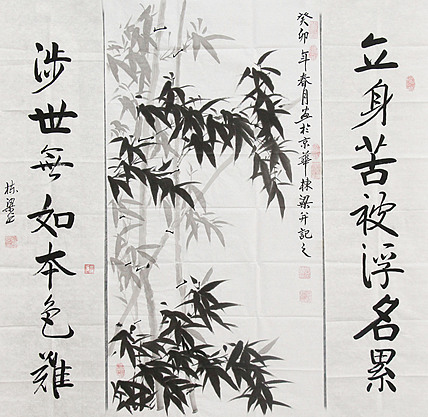 立身苦被浮名累
癸卯年春月画於京華棟梁并記之
涉世無如本色難
棟梁书